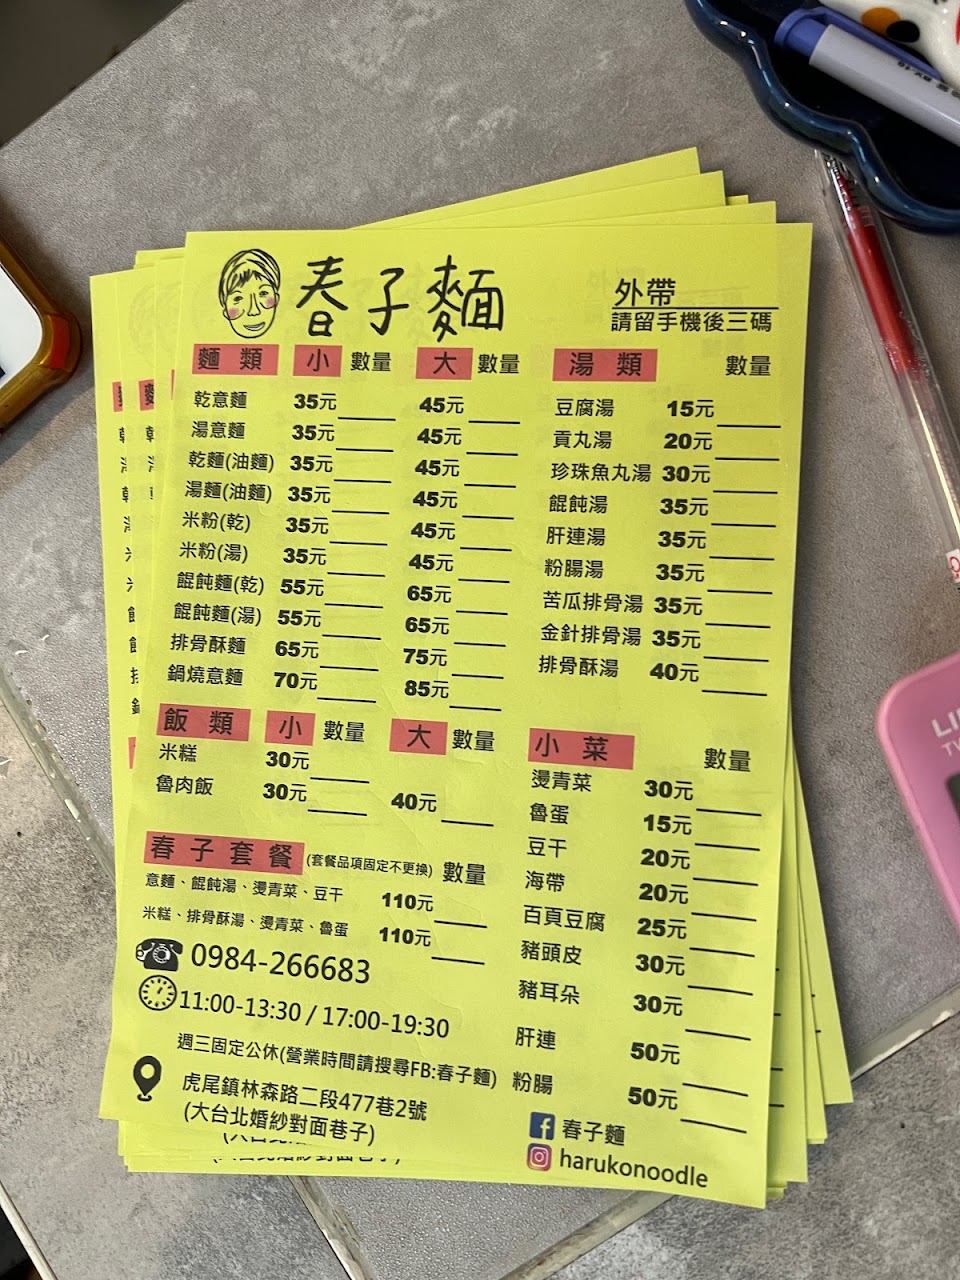 春子麵
外帶
請留手機後三碼
麵類 小 數量 大 數量
乾意麵 35元 45元
湯意麵 35元 45元
乾麵(油麵) 35元 45元
湯麵(油麵) 35元 45元
米粉(乾) 35元 45元
米粉(湯) 35元 45元
餛飩麵(乾) 55元 65元
餛飩麵(湯) 55元 65元
排骨酥麵 65元 75元
鍋燒意麵 70元 85元
飯類 小 數量 大 數量
米糕 30元
魯肉飯 30元 40元
春子套餐 (套餐品項固定不更換) 數量
意麵、餛飩湯、燙青菜、豆干 110元
米糕、排骨酥湯、燙青菜、魯蛋 110元
0984-266683
11:00-13:30 / 17:00-19:30
週三固定公休(營業時間請搜尋FB:春子麵)
虎尾鎮林森路二段477巷2號
(大台北婚紗對面巷子)
湯類 數量
豆腐湯 15元
貢丸湯 20元
珍珠魚丸湯 30元
餛飩湯 35元
肝連湯 35元
粉腸湯 35元
苦瓜排骨湯 35元
金針排骨湯 35元
排骨酥湯 40元
小菜 數量
燙青菜 30元
魯蛋 15元
豆干 20元
海帶 20元
百頁豆腐 25元
豬頭皮 30元
豬耳朵 30元
肝連 50元
粉腸 50元
春子麵
harukonoodle